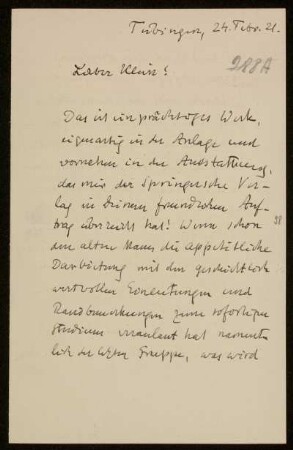 Tübingen, 24. Febr. 21.
288 A
Lieber Klein!
Das ist ein prächtiges Werk,
eigenartig in der Anlage und
vornehm in der Ausstattung,
das mir der Springersche Ver-
lag in Deinem freundlichen Auf-
trag überreicht hat! Wenn schon
den alten Mann die appetitliche
Darbietung mit den geschichtlich
wertvollen Einleitungen und
Randbemerkungen zum sofortigen
Studium veranlasst hat namen
lich der Gruppe, was wird